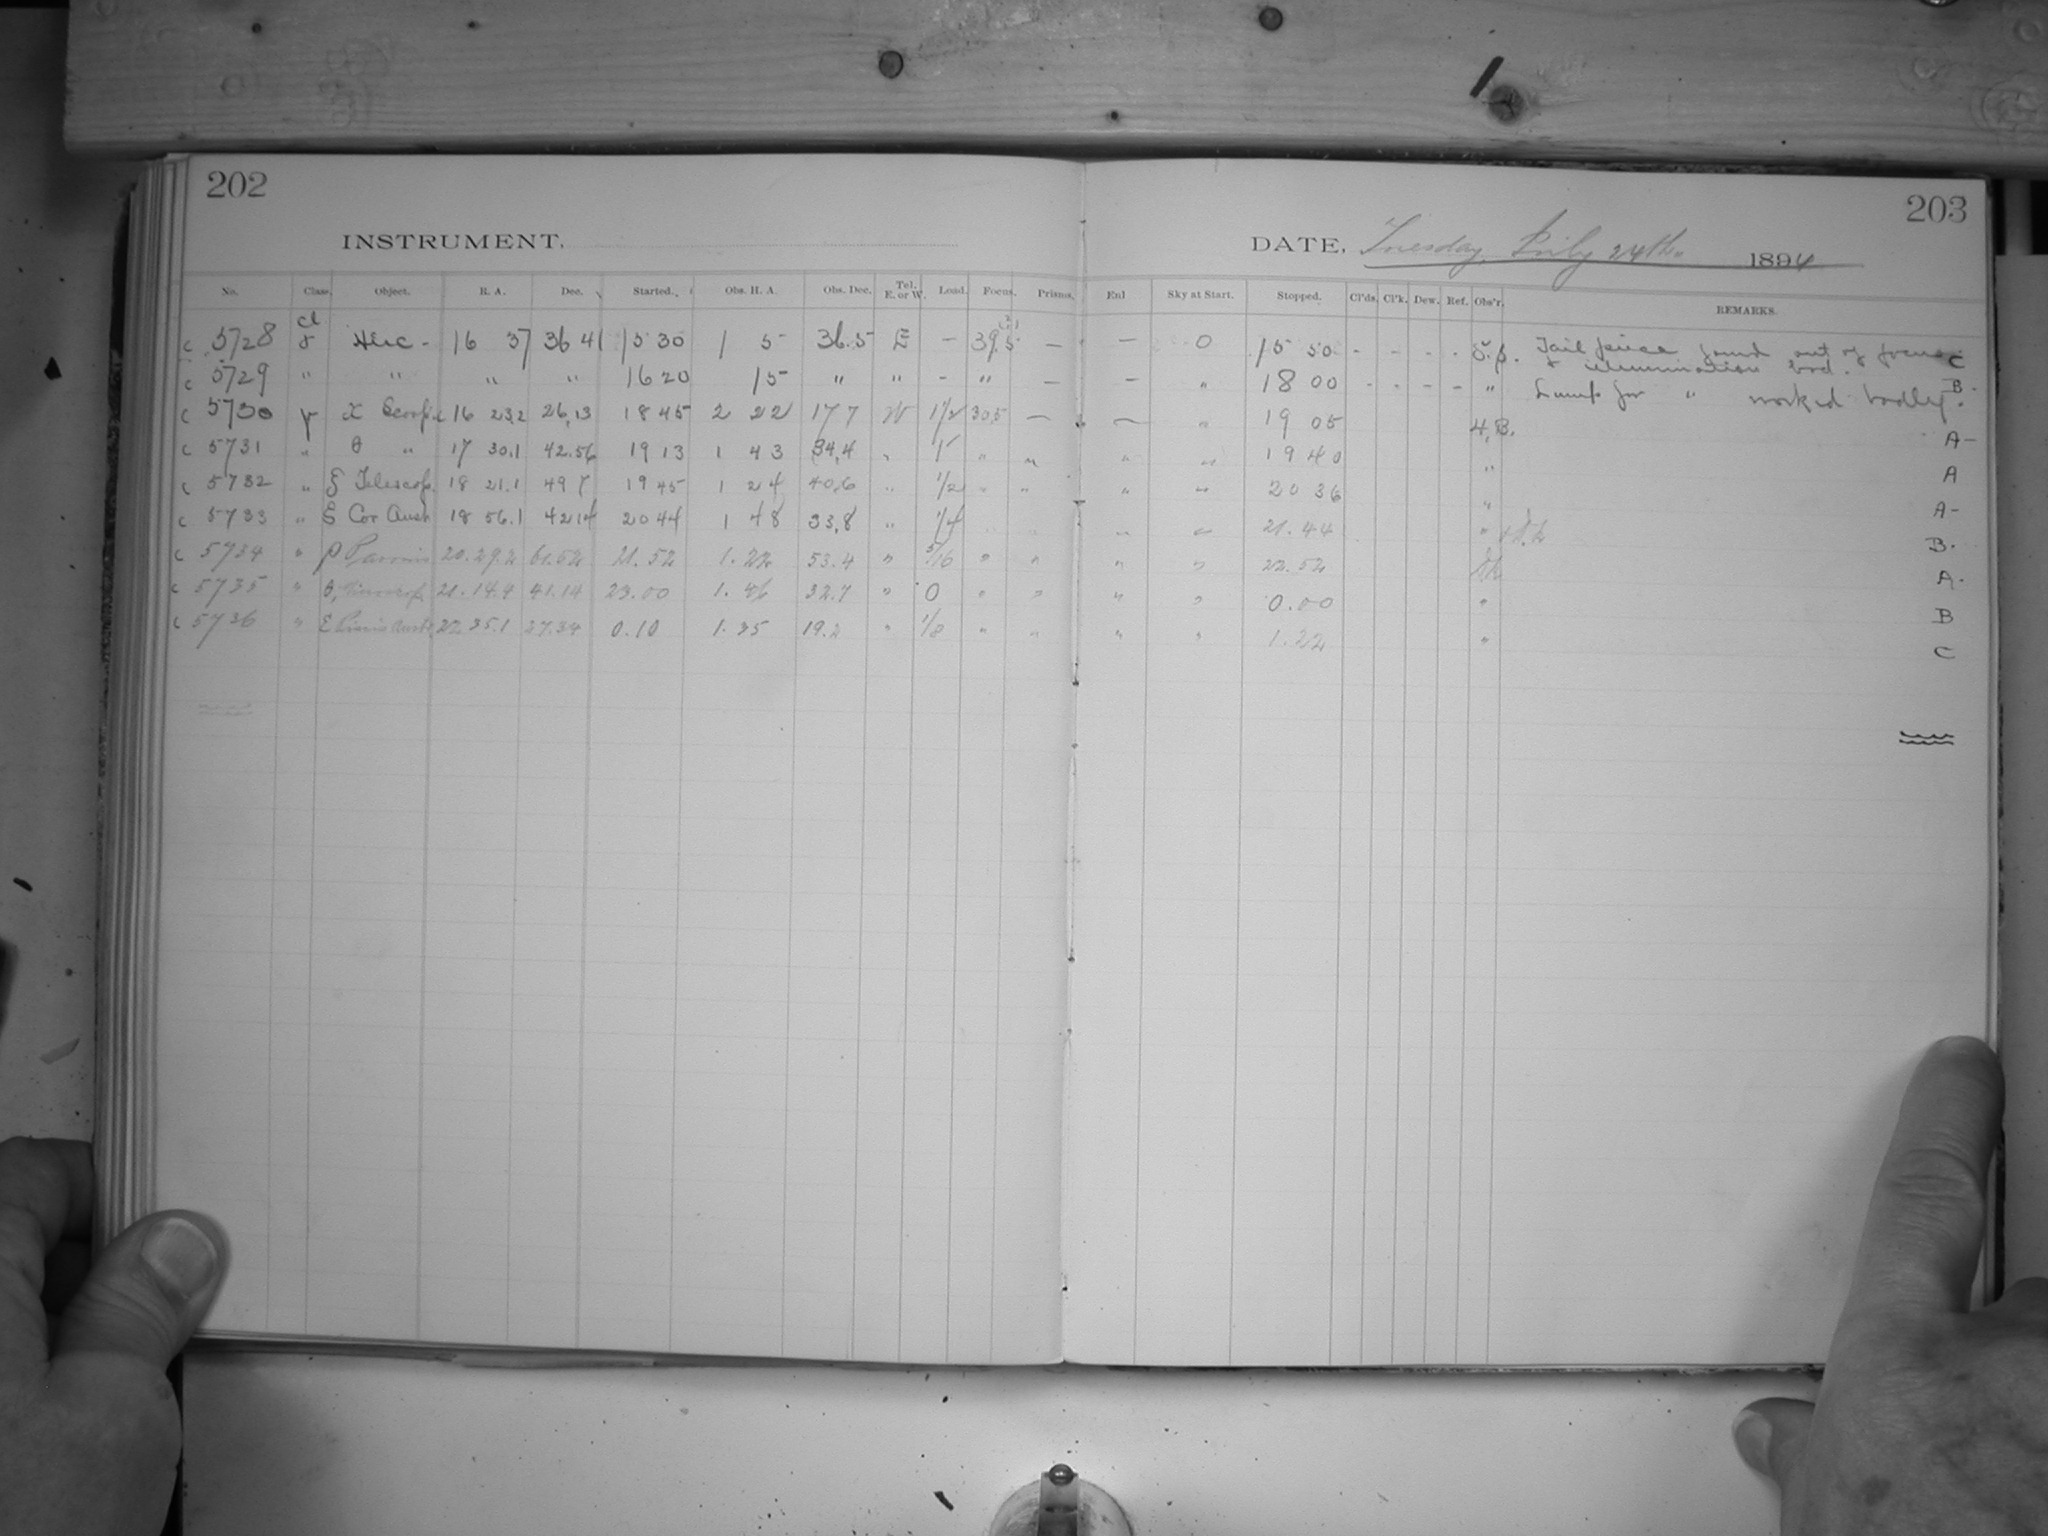 202
203
INSTRUMENT.
DATE. Tuesday, July 24th. 1894
No. Class. Object. R. A. Dec. Started. Obs. H. A. Obs. Dec. Tel. E. or W. Load. Focus. Prisms. Enl Sky at Start. Stopped. Cl'ds. Cl'k. Dew. Ref. Obs'r. REMARKS.
c 5728 cl Herc - 16 37 36 41 15 30 1 5 36.5 E - 39.5 - - 0 15 50 - - - - Tail piece found out of focus & illumination bad. C
c 5729 " " " " 16 20 15 " " - " - - " 18 00 - - - - " Lamp for " worked badly. B -
c 5730 X Scorpi 16 23,2 26,13 18 45 2 22 17 7 W 1/2 30,5 - - " 19 05 H.B. A -
c 5731 " θ " 17 30.1 42.56 19 13 1 43 34,4 " 1 " " " " 19 40 " A
c 5732 " Telescop. 18 21.1 49 7 19 45 1 24 40,6 " 1/2 " " " " 20 36 " A -
c 5733 " Cor Aust 18 56.1 42 14 20 44 1 48 33,8 " 1/4 " " 21.44 " B -
c 5734 " ρ Pavonis 20.29.2 61.52 21.52 1.22 53.4 " 5/16 " " " " 22.52 A -
c 5735 " θ, Microscop. 21.14.4 41.14 23.00 1.46 32.7 " 0 " " " " 0.00 " B
c 5736 " ε Piscis Aust. 22 35.1 27.34 0.10 1.35 19.2 " 1/8 " " " " 1.22 " C